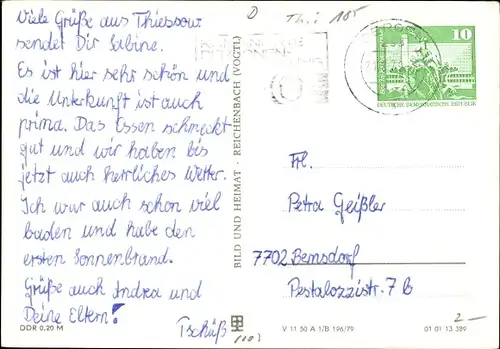 Viele Grüße aus Thiessow
sendet Dir Sabine.
Es ist hier sehr schön und
die Unterkunft ist auch
prima. Das Essen schmeckt
gut und wir haben bis
jetzt auch herrliches Wetter.
Ich war auch schon viel
baden und habe den
ersten Sonnenbrand.
Grüße auch Andrea und
Deine Eltern!
Tschüß
DDR 0,20 M
BILD UND HEIMAT · REICHENBACH (VOGTL)
10
DEUTSCHE DEMOKRATISCHE REPUBLIK
Frl.
Petra Geißler
7702 Bernsdorf
Pestalozzistr. 7b
V 11 50 A 1/B 196/79
01 01 13 389
2-